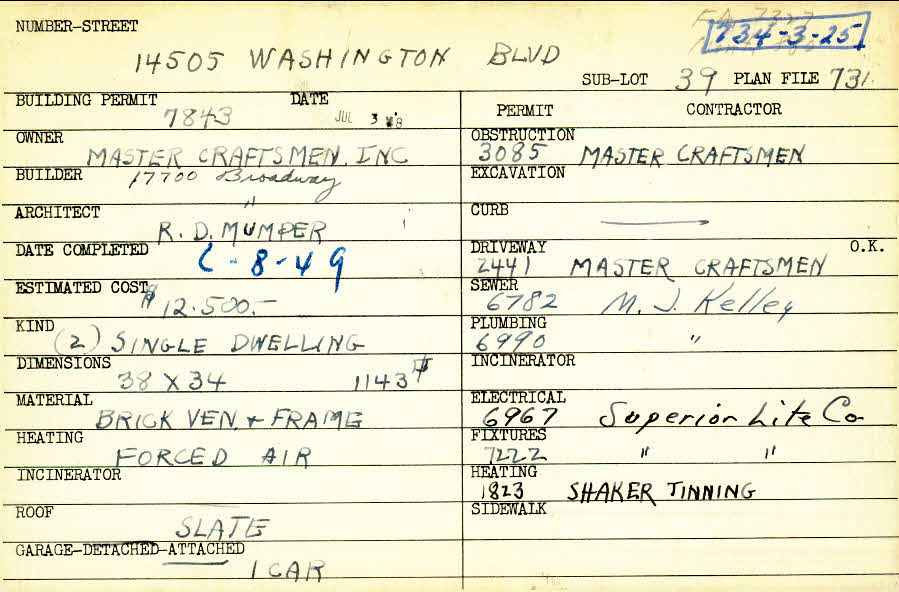 NUMBER-STREET
734-3-25
14505 WASHINGTON BLVD
SUB-LOT 39 PLAN FILE 731
BUILDING PERMIT DATE
7843 JUL 3
OWNER
MASTER CRAFTSMEN, INC
BUILDER 17700 Broadway
"
ARCHITECT
R. D. MUMPER
DATE COMPLETED
-8-49
ESTIMATED COST
$12.500.-
KIND
(2) SINGLE DWELLING
DIMENSIONS
38 X 34 1143
MATERIAL
BRICK VEN + FRAME
HEATING
FORCED AIR
INCINERATOR
ROOF
SLATE
GARAGE-DETACHED-ATTACHED
1 CAR
PERMIT CONTRACTOR
OBSTRUCTION
3085 MASTER CRAFTSMEN
EXCAVATION
CURB
DRIVEWAY O.K.
2441 MASTER CRAFTSMEN
SEWER
6782 M. J. Kelley
PLUMBING
6990 "
INCINERATOR
ELECTRICAL
6967 Superior Lite Co
FIXTURES
7222 " "
HEATING
1823 SHAKER TINNING
SIDEWALK